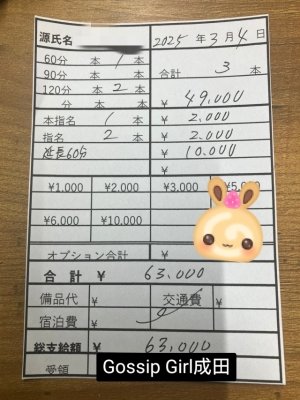 源氏名 2025年3月4日
60分 本 1 本
90分 本 本 合計 3 本
120分 本 2 本
分 本 本 ¥ 49,000
本指名 1 本 ¥ 2,000
指名 2 本 ¥ 2,000
延長60分 ¥ 10,000
¥
¥1,000 ¥2,000 ¥3,000 ¥5,
¥6,000 ¥10,000
オプション合計 ¥
合計 ¥ 63,000
備品代 ¥ 交通費
宿泊費 ¥
総支給額 ¥ 63,000
受領
Gossip Girl成田